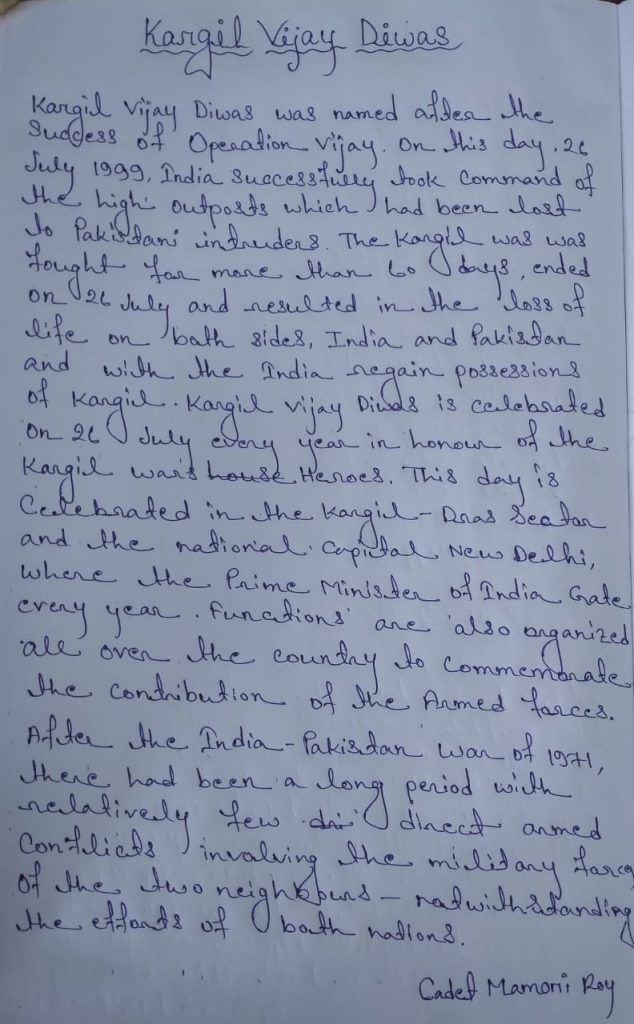 Kargil Vijay Diwas
Kargil Vijay Diwas was named after the
Success of Operation Vijay. On this day, 26
July 1999, India successfully took command of
the high outposts which had been lost
to Pakistani intruders. The Kargil was was
fought for more than 60 days, ended
on 26 July and resulted in the loss of
life on both sides, India and Pakistan
and with the India regain possessions
of Kargil. Kargil Vijay Diwas is celebrated
on 26 July every year in honour of the
Kargil war's house Heroes. This day is
Celebrated in the Kargil-Dras Sector
and the national capital New Delhi,
where the Prime Minister of India Gate
every year. Functions are also organized
all over the country to commemorate
the contribution of the Armed forces.
After the India-Pakistan war of 1971,
there had been a long period with
relatively few dri direct armed
Conflicts involving the military force
of the two neighbours - notwithstanding
the efforts of both nations.
Cadet Mamoni Roy